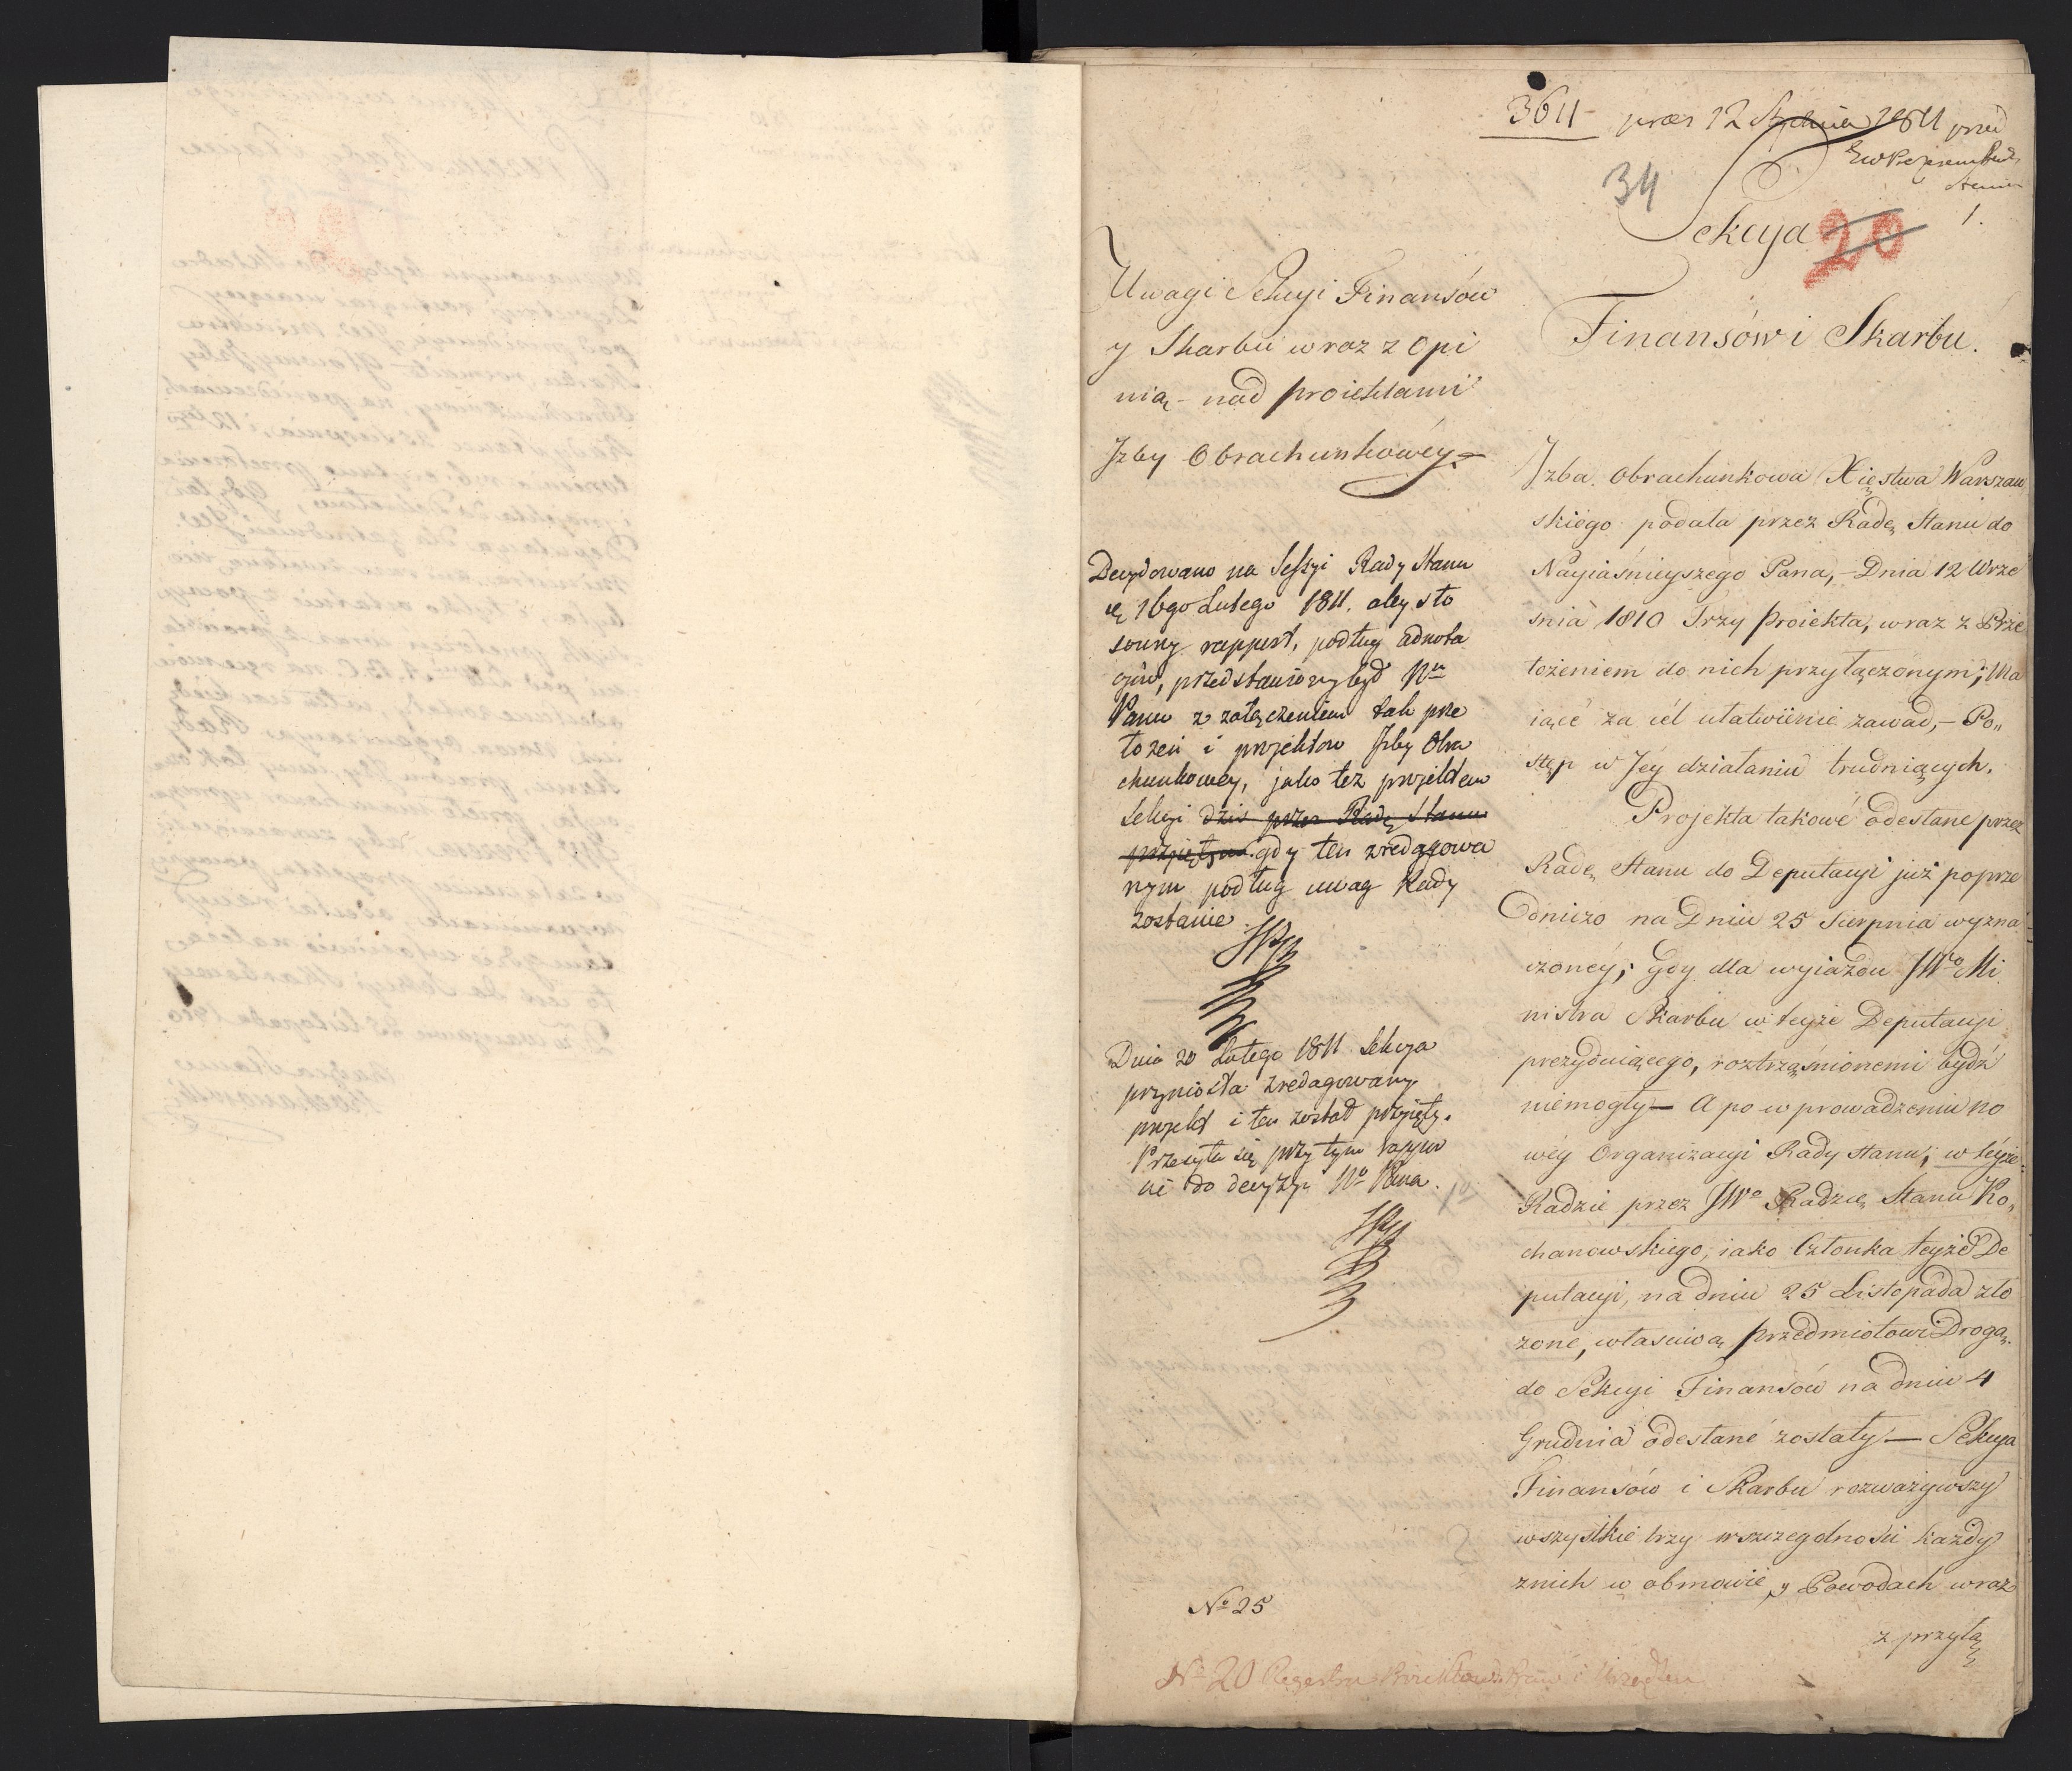 3611
praes 12 Stycznia 1811
34
1.
Sekcya 20
Finansów i Skarbu.
Uwagi Sekcyi Finansów
y Skarbu wraz z Opi
nią - nad proiektami
Jzby Obrachunkowéy.
Decydowano na Sessyi Rady Stanu
16go Lutego 1811. aby sto
sowny rapport, podług adnota
cyów, przedstawiony był Nu
Panu z załączeniem tak prze
łożeń i projektow Jzby Obra
chunkowey, jako też projektem
Sekcyi dziś przez Radę Stanu
przyiętym. gdy ten zredagowa
nym podług uwag Rady
zostanie
Dnia 20 Lutego 1811 Sekcya
przyniosła zredagowany
projekt i ten został przyięty.
Przesyła się przy tym rappor
cie do decyzyi No Pana.
Jzba Obrachunkowa Xięstwa Warszaw
skiégo podała przez Radę Stanu do
Nayiaśnieyszego Pana, - Dnia 12 Wrze
śnia 1810 Trzy Proiekta, wraz z Prze
łożeniem do nich przyłączonym; Ma
iącé za cél ułatwiénié zawad, - Po„
stęp w Jéy działaniu trudniących.
Projekta takowé odesłane przez
Radę Stanu do Deputacyi już poprze
dniczo na Dniu 25 Sierpnia wyzna
czonéy; gdy dla wyiazdu JWo Mi
nistra Skarbu w teyże Deputacyi
prezyduiącego, roztrząśnionemi bydź
niemogły — A po wprowadzeniu no
wéy Organizacyi Rady Stanu; w téyże
Radzie przez JWo Radzcę Stanu Ko„
chanowskiego, iako Członka teyże De
putacyi, na dniu 25 Listopada zło
żone, właściwą Przedmiotowi Drogą
do Sekcyi Finansów na dniu 4
Grudnia odesłané zostały — Sekcya
Finansów i Skarbu rozważywszy
wszystkie trzy w szczegolności każdy
z nich w obmowie y Powodach wraz
z przyłą
No 25
No 20